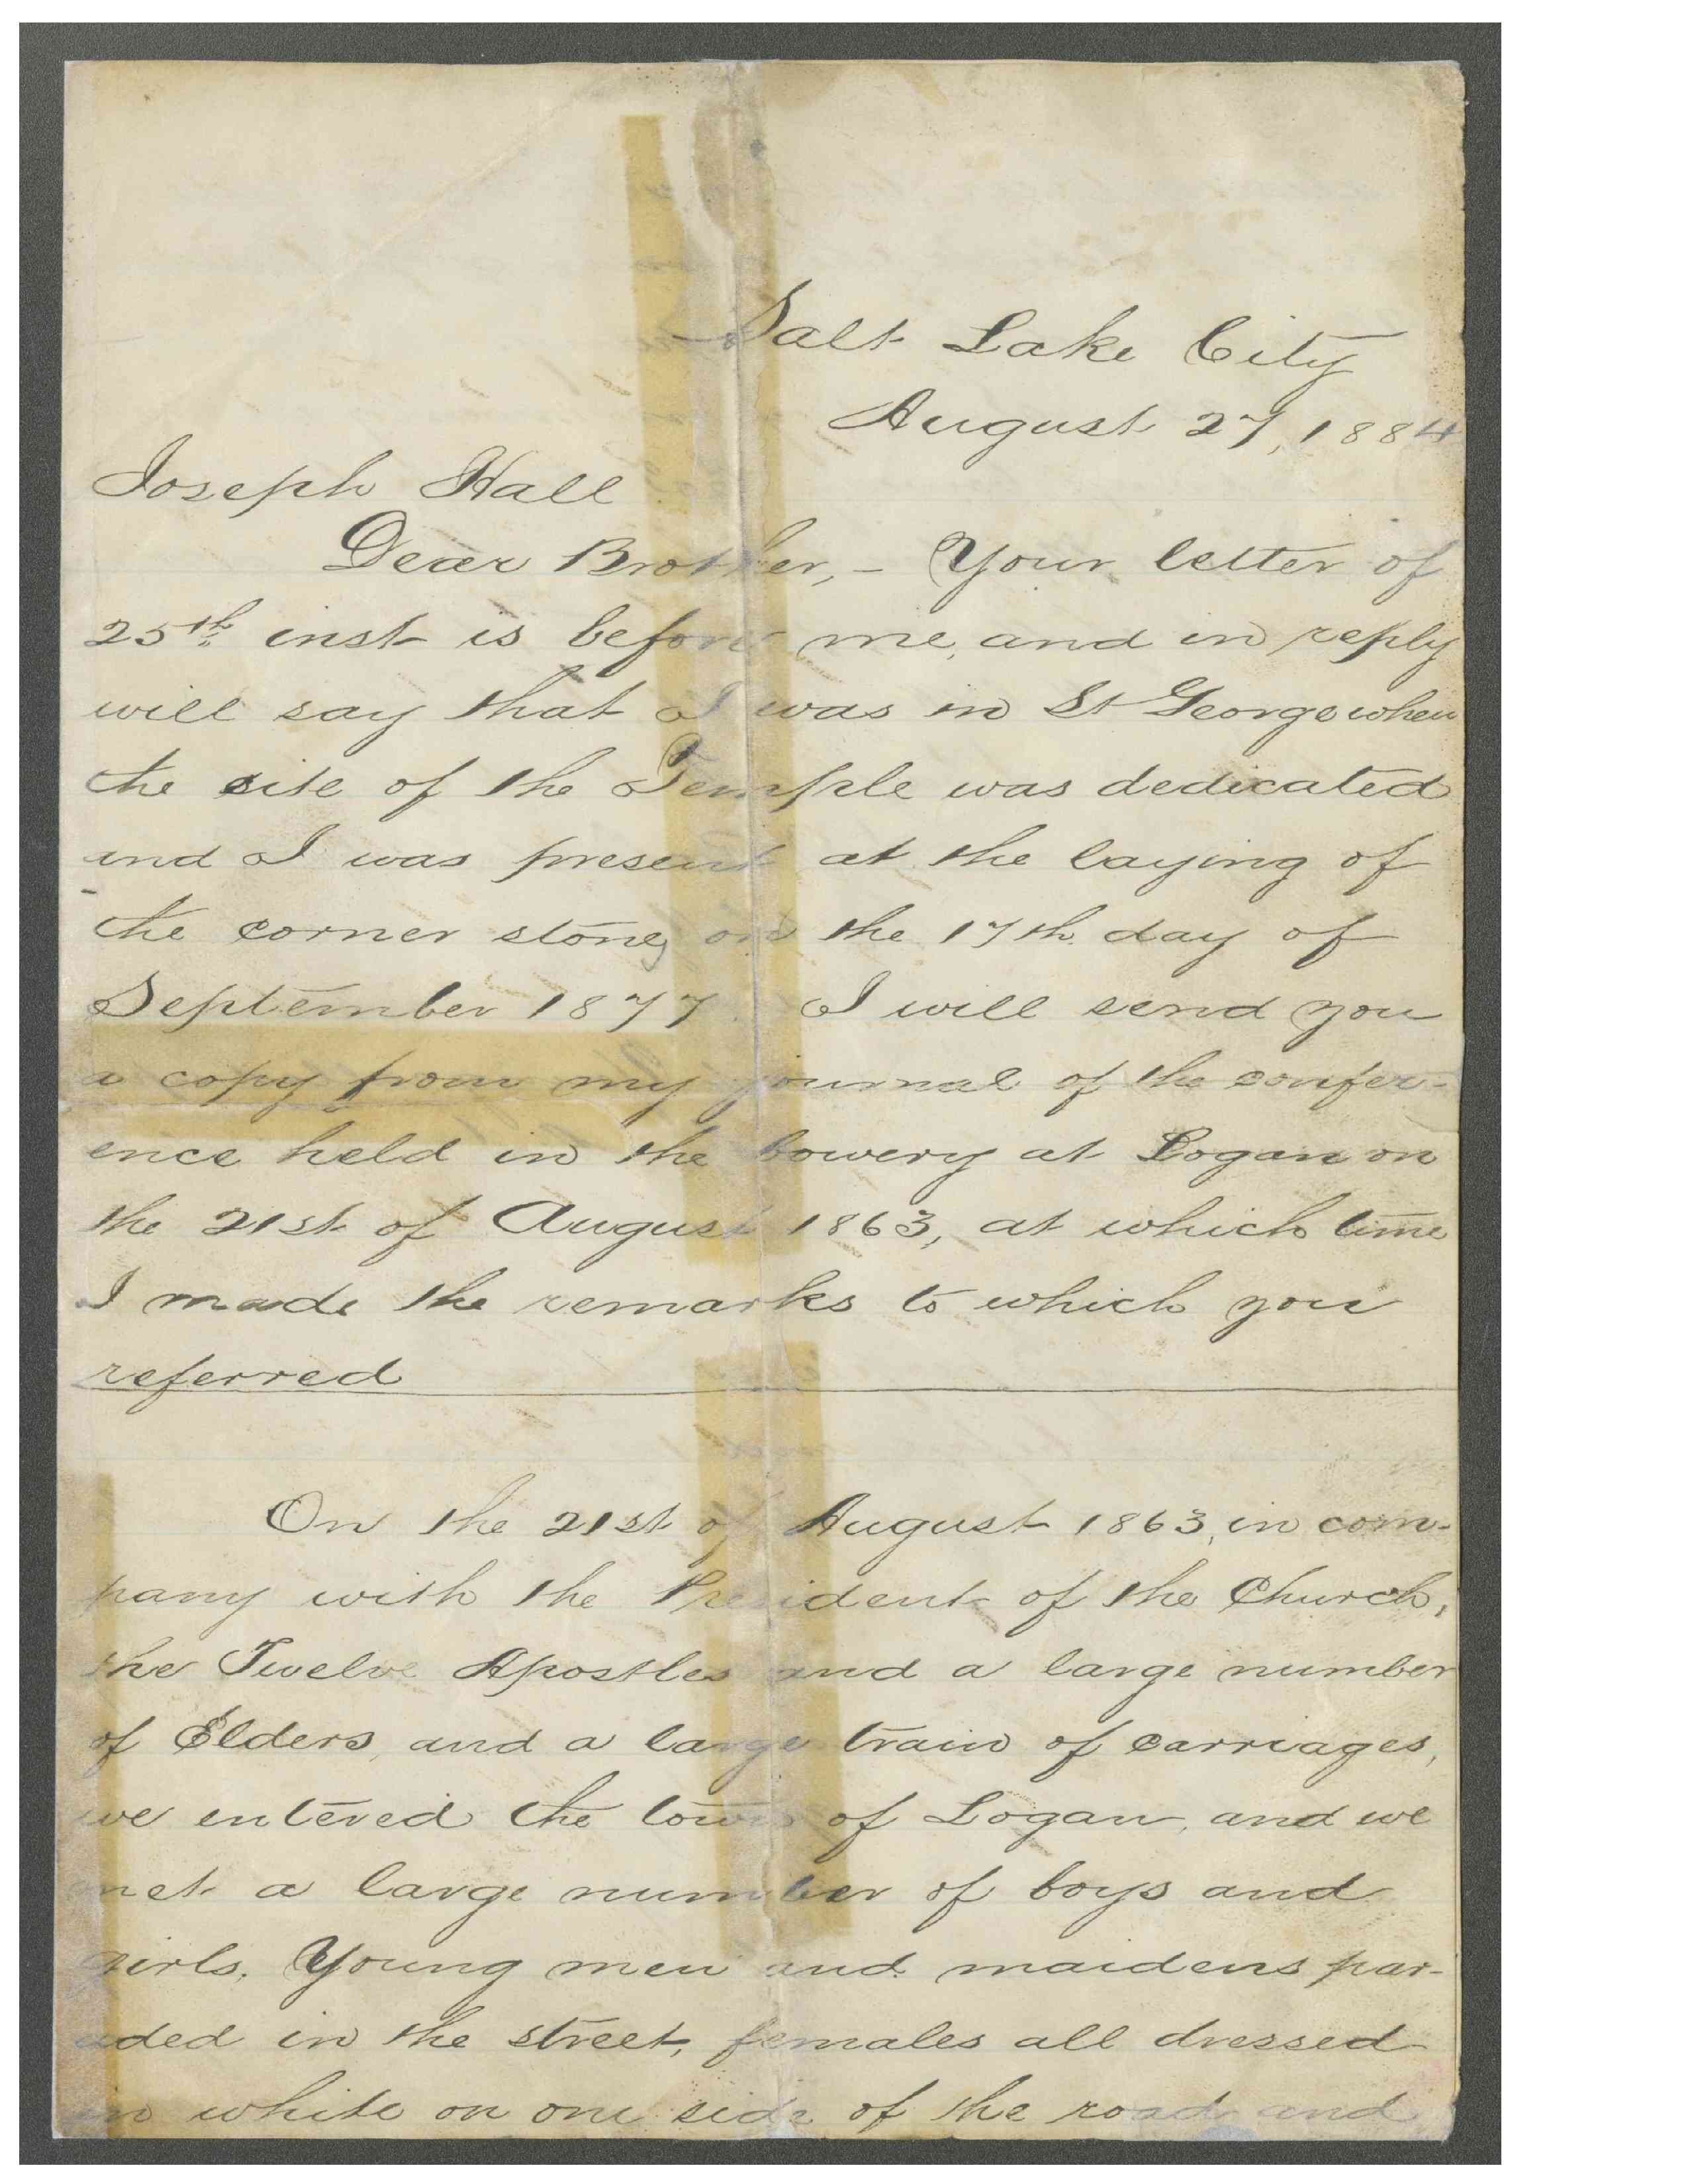 Salt Lake City
August 27, 1884
Joseph Hall
Dear Brother,- Your letter of
25th inst is before me, and in reply
will say that I was in St George when
the site of the Temple was dedicated
and I was present at the laying of
the corner stone, on the 17th day of
September 1877. I will send you
a copy from my journal of the confer-
ence held in the bowery at Logan on
the 21st of August 1863, at which time
I made the remarks to which you
referred
On the 21st of August 1863, in com-
pany with the President of the Church,
the Twelve Apostles and a large number
of Elders, and a large train of carriages,
we entered the town of Logan, and we
met a large number of boys and
girls. Young men and maidens par-
aded in the street, females all dressed
in white on one side of the road and